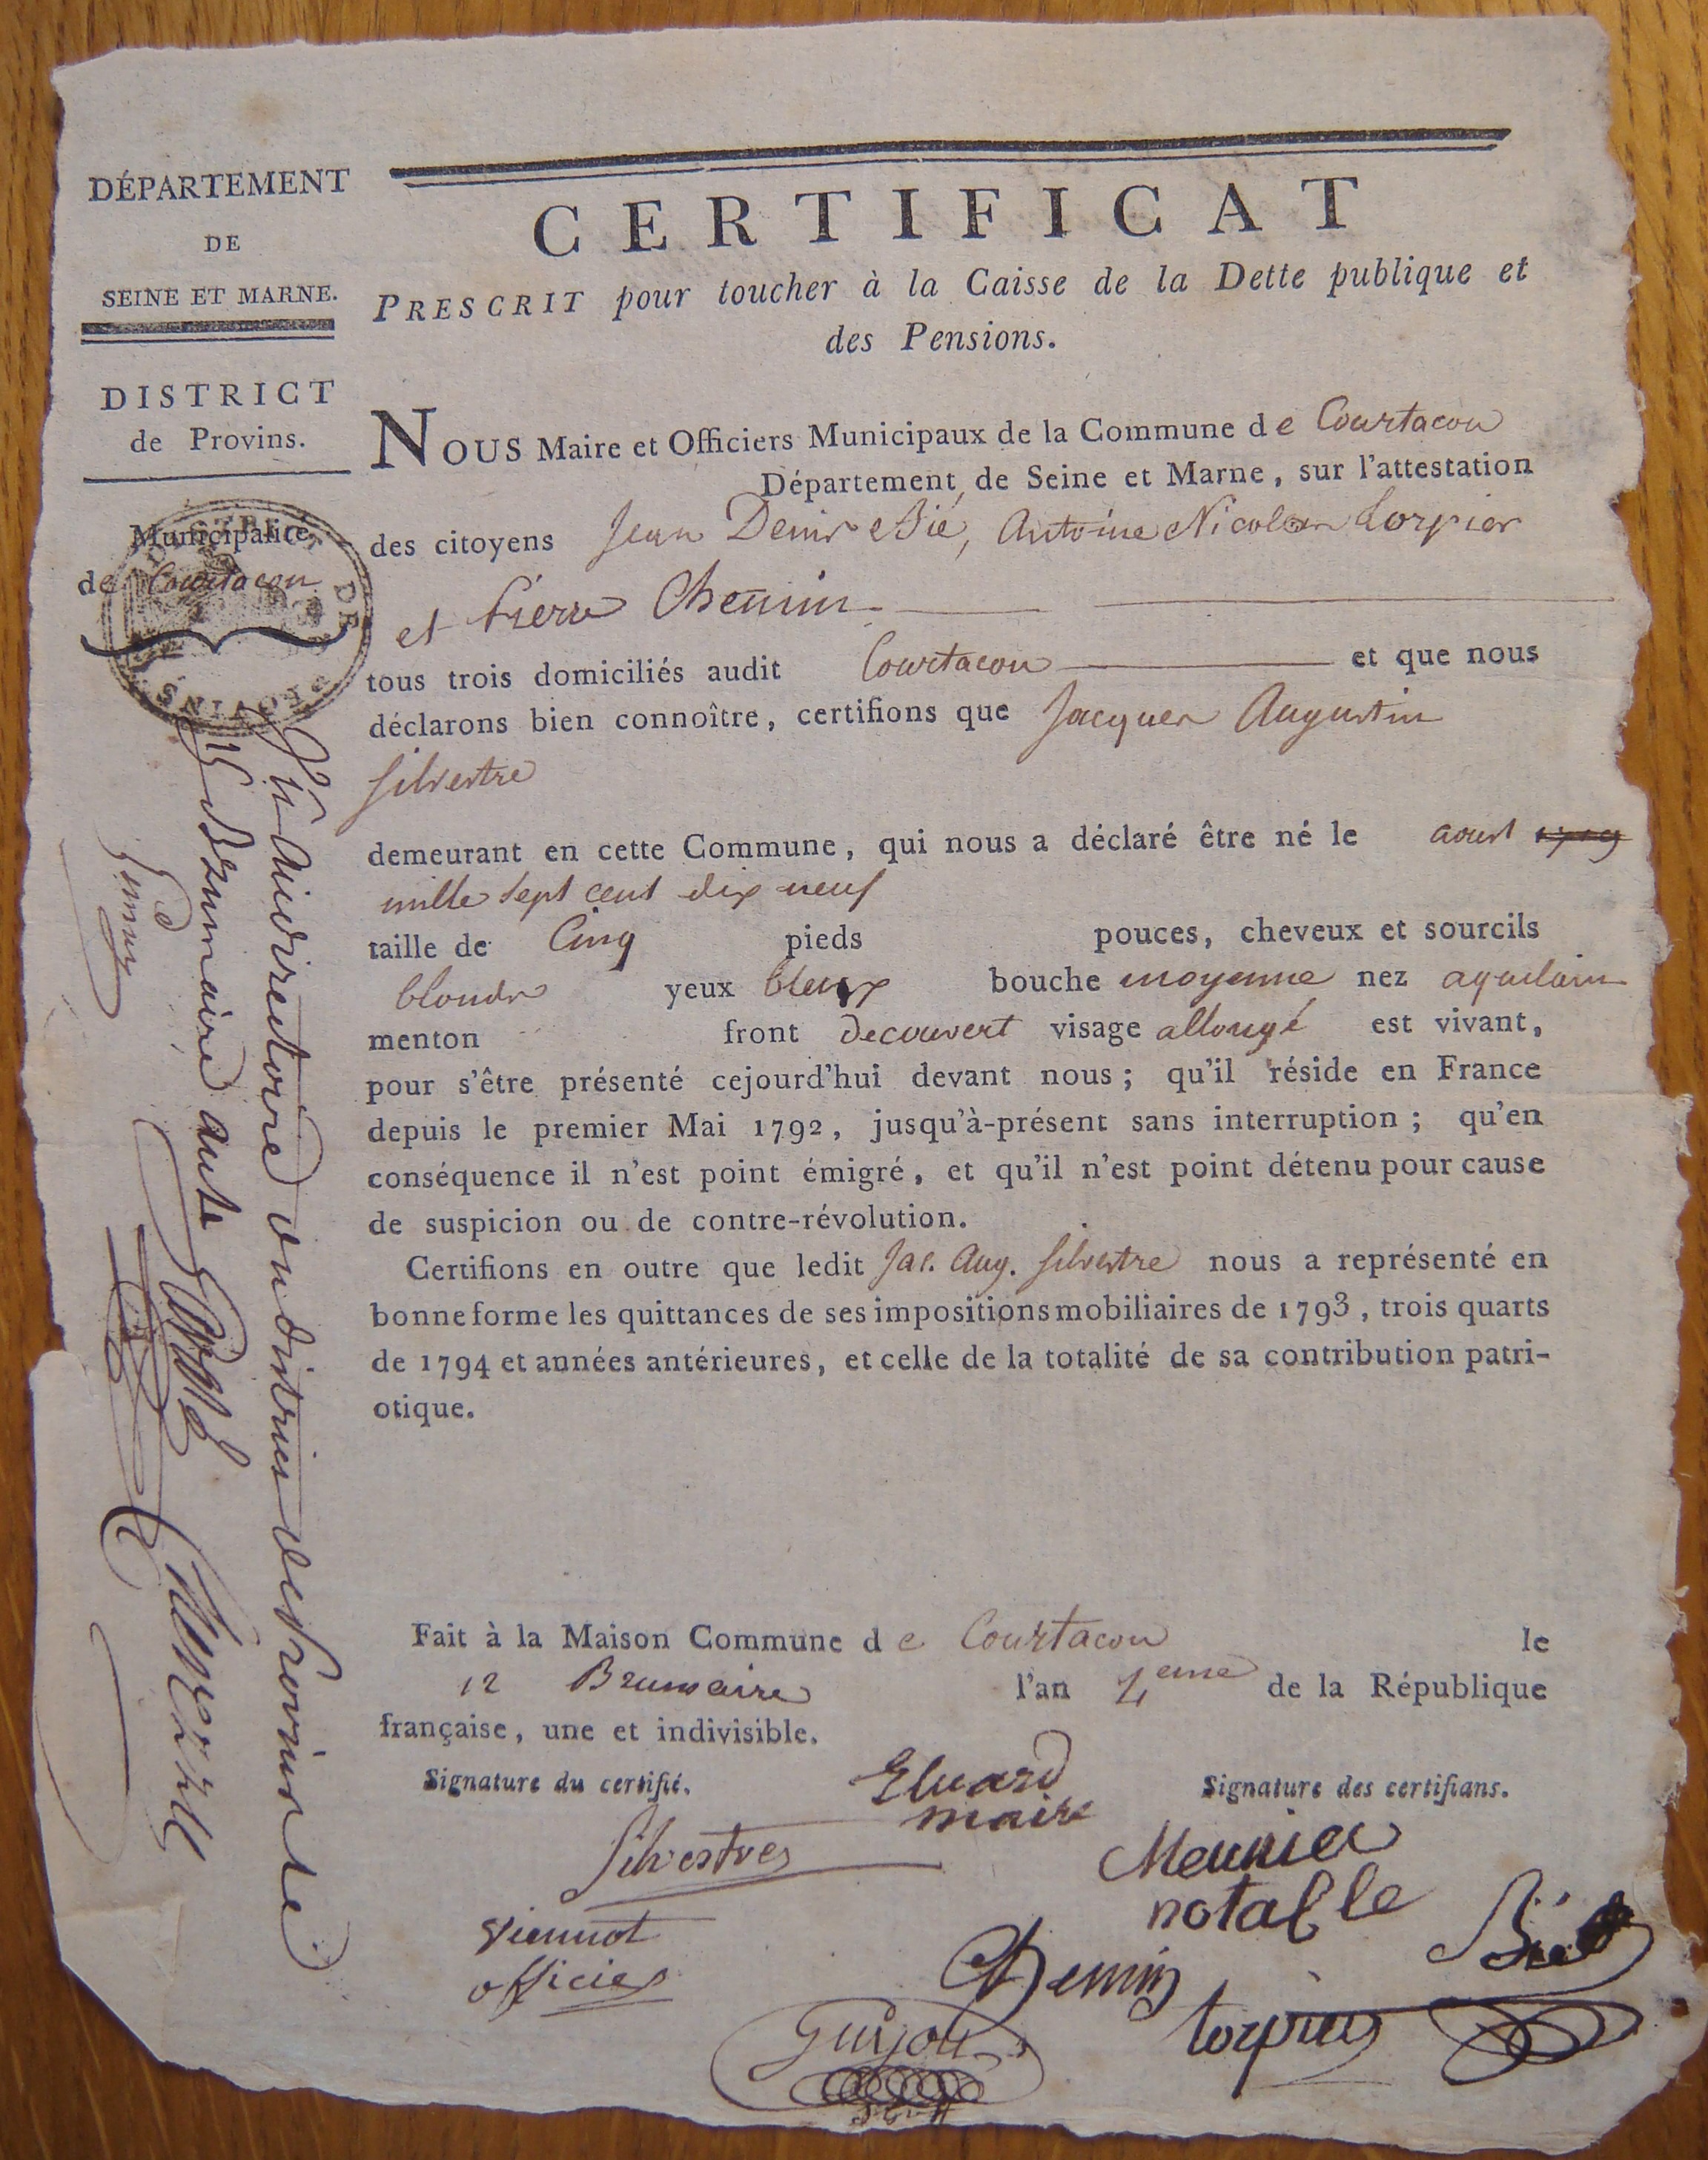 DÉPARTEMENT
DE
SEINE ET MARNE.
DISTRICT
de Provins.
Municipalité
de Courtacon
CERTIFICAT
PRESCRIT pour toucher à la Caisse de la Dette publique et
des Pensions.
NOUS Maire et Officiers Municipaux de la Commune de Courtacon
Département de Seine et Marne, sur l'attestation
des citoyens Jean Denis Bié, Antoine Nicolas Lorpier
et Pierre Chemin
tous trois domiciliés audit Courtacon et que nous
déclarons bien connoître, certifions que Jacques Augustin
Silvestre
demeurant en cette Commune, qui nous a déclaré être né le aoust 1719
mille sept cent dix neuf
taille de Cinq pieds pouces, cheveux et sourcils
blonds yeux bleux bouche moyenne nez aquilain
menton front decouvert visage allongé est vivant,
pour s'être présenté cejourd'hui devant nous; qu'il réside en France
depuis le premier Mai 1792, jusqu'à-présent sans interruption; qu'en
conséquence il n'est point émigré, et qu'il n'est point détenu pour cause
de suspicion ou de contre-révolution.
Certifions en outre que ledit Jac. Aug. Silvestre nous a représenté en
bonne forme les quittances de ses impositions mobiliaires de 1793, trois quarts
de 1794 et années antérieures, et celle de la totalité de sa contribution patri-
otique.
Fait à la Maison Commune de Courtacon le
12 Brumaire l'an 4eme de la République
française, une et indivisible.
Signature du certifié.
Signature des certifians.
Eluard
maire
Silvestre
Meunier
notable
Bié
Viennot
officier
Chemin
Lorpier
Guyou
Vu au directoire du district de Provins le
15 Brumaire an 4e